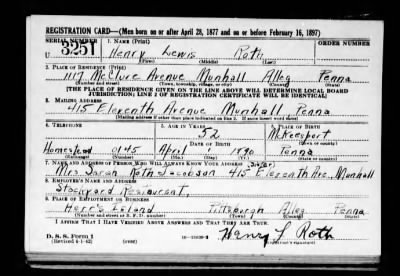 REGISTRATION CARD—(Men born on or after April 28, 1877 and on or before February 16, 1897)
SERIAL NUMBER
1. NAME (Print)
ORDER NUMBER
U 3251
Henry Lewis Roth
(First) (Middle) (Last)
2. PLACE OF RESIDENCE (Print)
1117 McClure Avenue Munhall Alleg Penna
(Number and street) (Town, township, village, or city) (County) (State)
[THE PLACE OF RESIDENCE GIVEN ON THE LINE ABOVE WILL DETERMINE LOCAL BOARD
JURISDICTION; LINE 2 OF REGISTRATION CERTIFICATE WILL BE IDENTICAL]
3. MAILING ADDRESS
415 Eleventh Avenue Munhall Penna
[Mailing address if other than place indicated on line 2. If same insert word same]
4. TELEPHONE
5. AGE IN YEARS
6. PLACE OF BIRTH
52
McKeesport
DATE OF BIRTH
(Town or county)
Homestead 0145
April 1890
Penna
(Exchange) (Number)
(Mo.) (Day) (Yr.)
(State or country)
7. NAME AND ADDRESS OF PERSON WHO WILL ALWAYS KNOW YOUR ADDRESS (Sister)
Mrs. Sarah Roth Jacobson 415 Eleventh Ave., Munhall
8. EMPLOYER'S NAME AND ADDRESS
Stockyard Restaurant,
9. PLACE OF EMPLOYMENT OR BUSINESS
Herr's Island Pittsburgh Alleg Penna
(Number and street or R. F. D. number) (Town) (County) (State)
I AFFIRM THAT I HAVE VERIFIED ABOVE ANSWERS AND THAT THEY ARE TRUE.
D. S. S. Form 1
(Revised 4-1-42) (over)
Henry L Roth
(Registrant's signature)